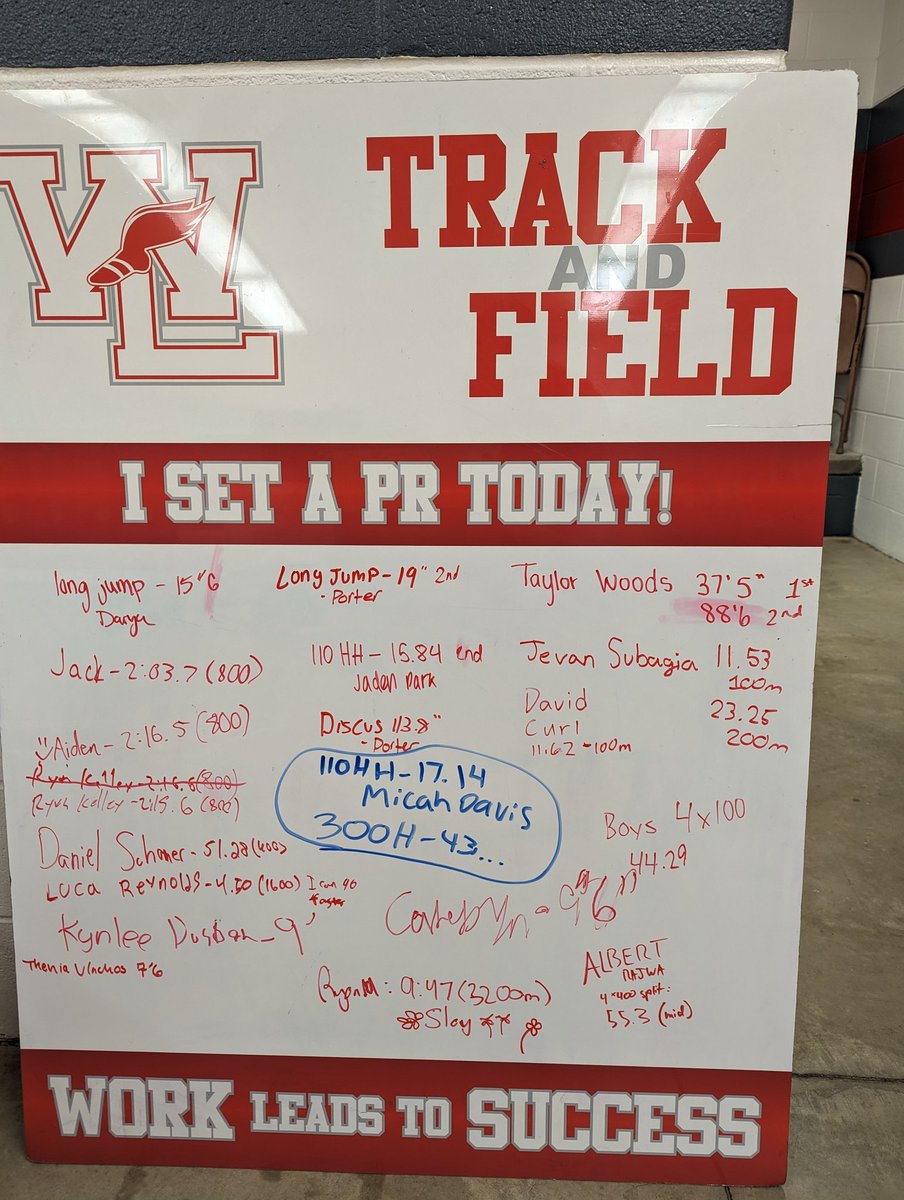 WL
TRACK
AND
FIELD
I SET A PR TODAY!
long jump - 15"6
Darya
Jack - 2:03.7 (800)
Aiden - 2:16.5 (800)
Ryan Kelley - 2:16.6 (800)
Ryan Kelley - 2:15.6 (800)
Daniel - 51.28 (400)
LUCA REYNOLDS - 4:50 (1600) I can go
faster
Kynlee - 9'
Thenia 7'6
LONG JUMP - 19" 2nd
- Porter
110 HH - 15.84 2nd
Jaden Park
DISCUS 113.8"
- Porter
110HH - 17.14
Micah Davis
300H - 43...
9"6
Ryan M: 9:47 (3200m)
Slay
Taylor Woods 37'5" 1st
88'6 2nd
Jevan Subagia 11.53
100m
David 23.25
Curl 200m
11.62 - 100m
Boys 4x100
44.29
ALBERT
RAJWA
4x400 split:
55.3 (mid)
WORK LEADS TO SUCCESS